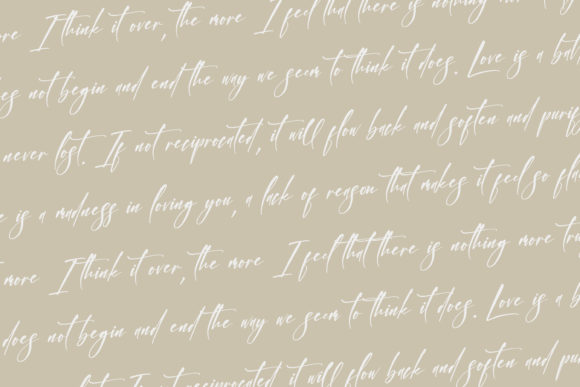 more I think it over, the more I feel that there is nothing
does not begin and end the way we seem to think it does. Love is a
never lost. If not reciprocated, it will flow back and soften and
is a madness in loving you, a lack of reason that makes it feel so
more I think it over, the more I feel that there is nothing more
does not begin and end the way we seem to think it does. Love is a
not reciprocated, it will flow back and soften and